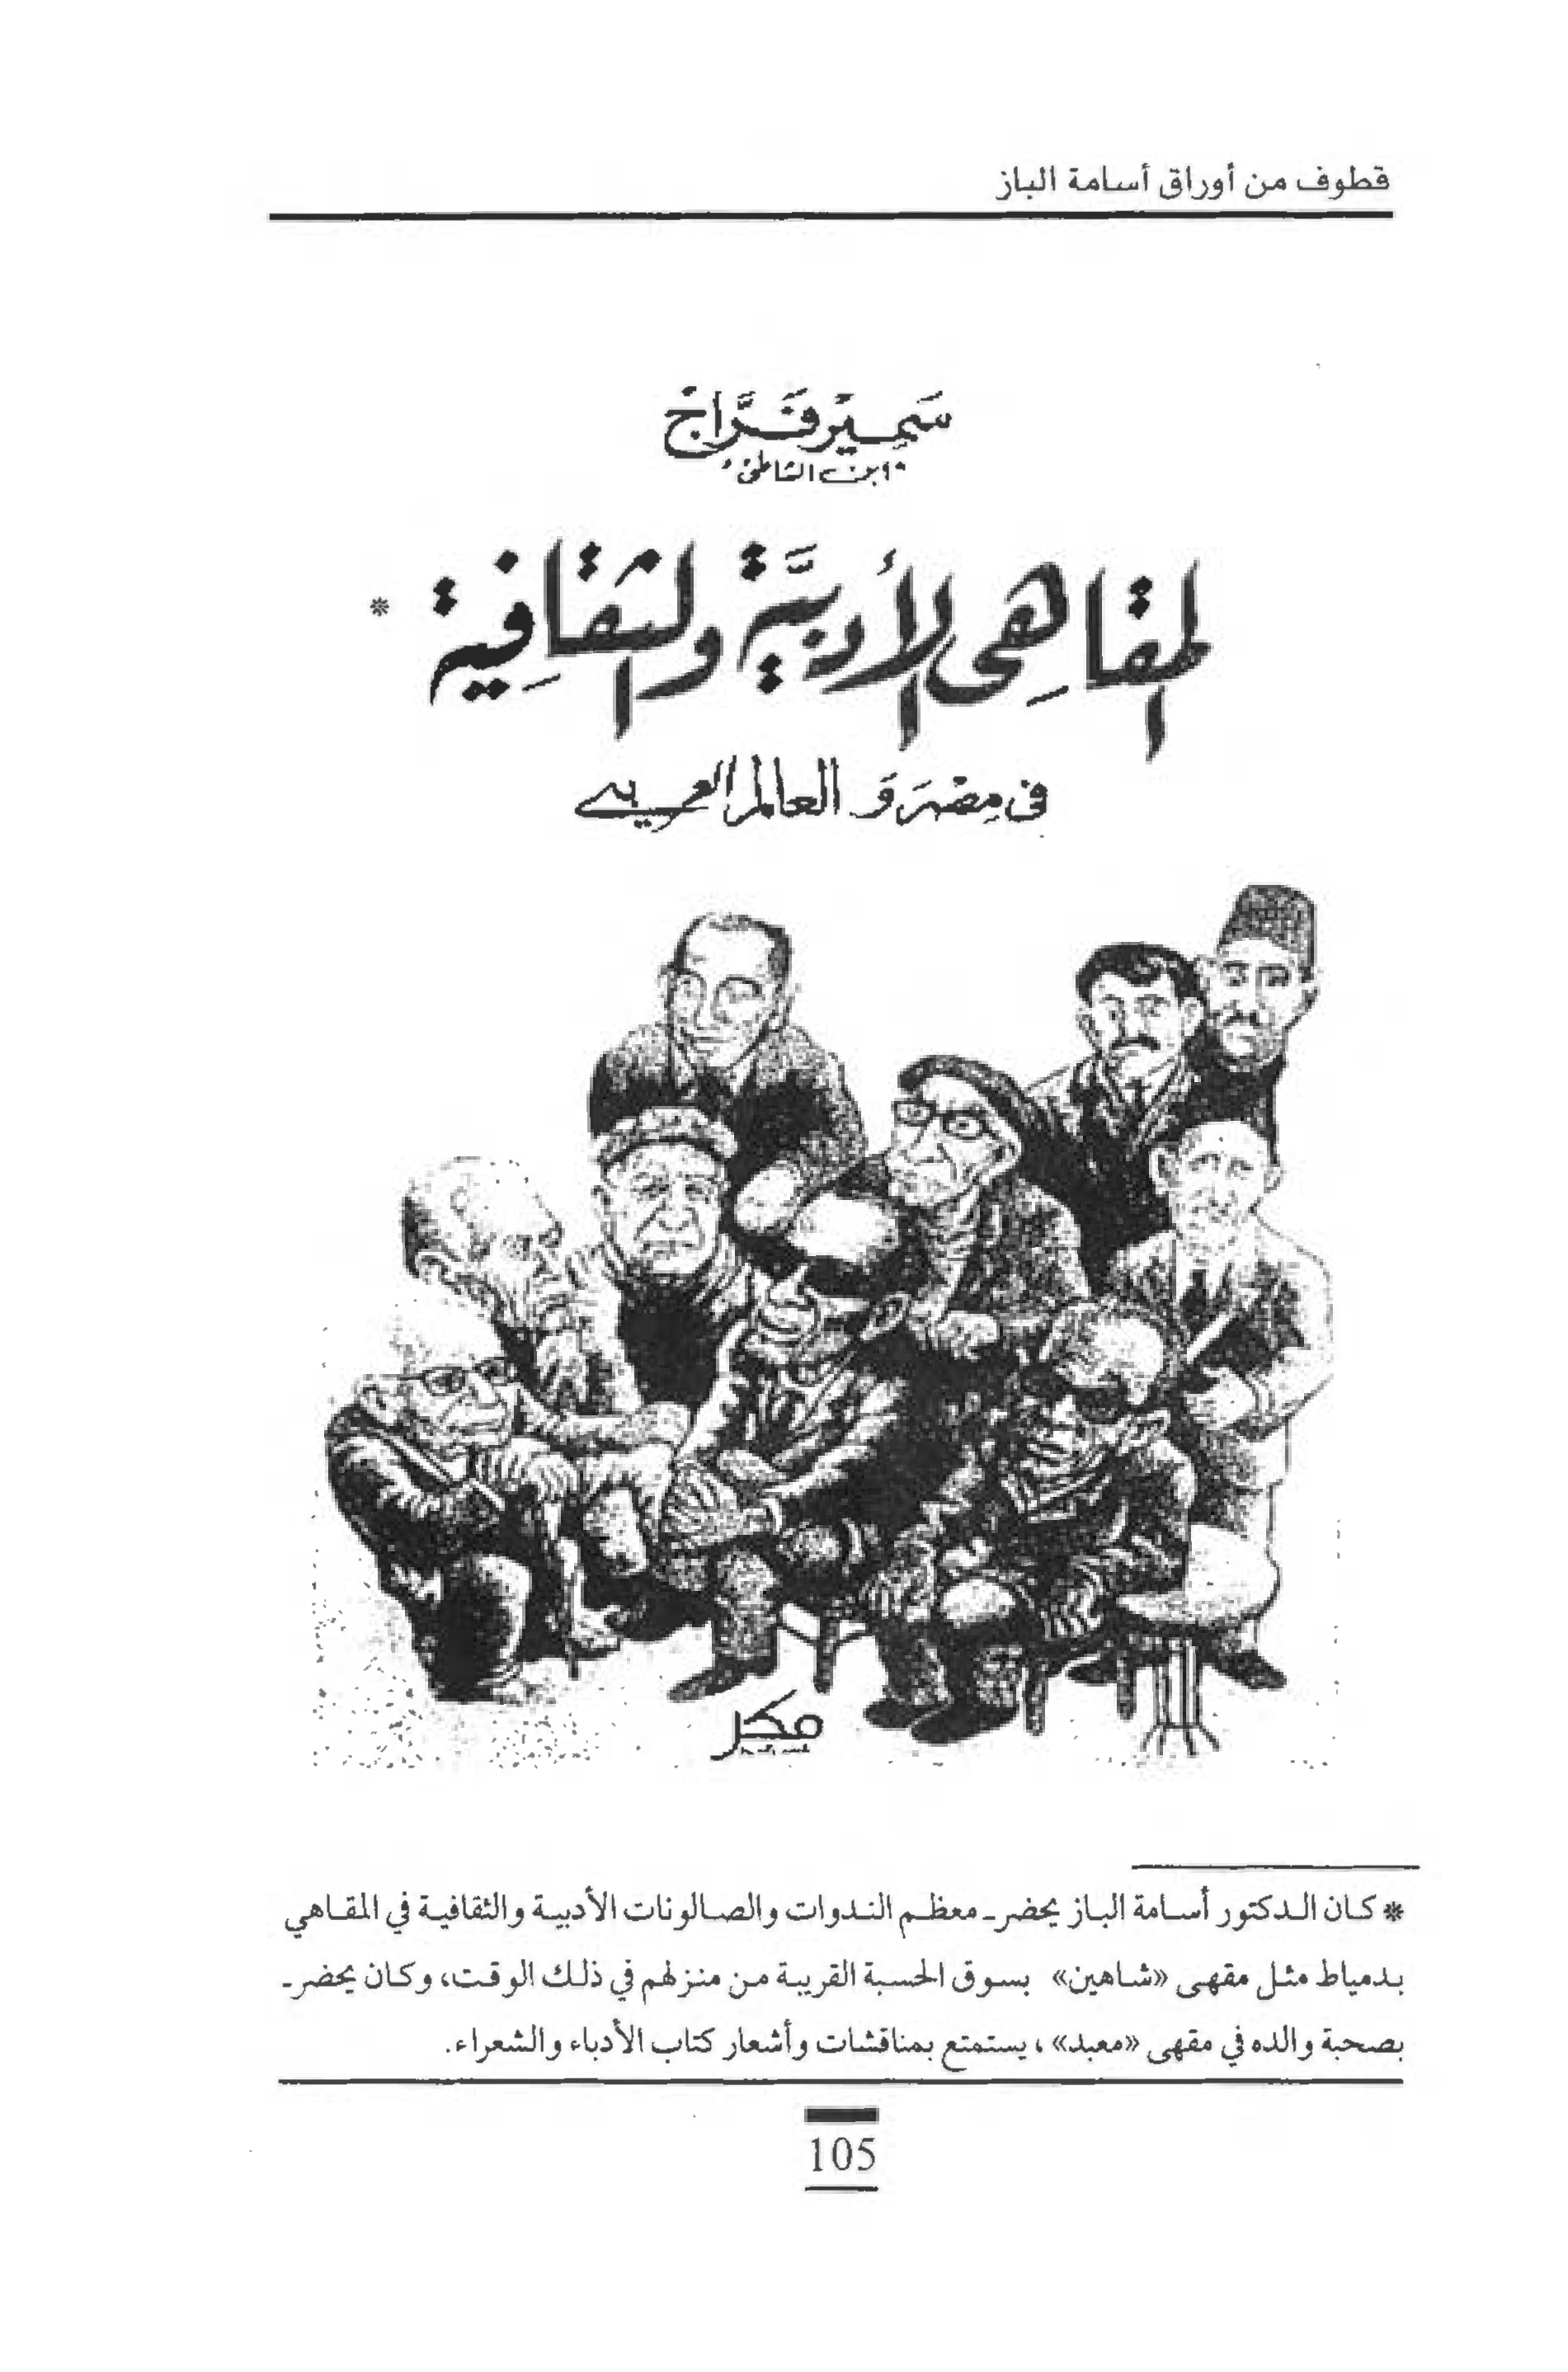 قطوف من أوراق أسامة الباز
سَمِير فَرَّاج
"ابن الشاطئ"
المقاهِى الأدبيَّة والثقافِية *
فى مِصْر وَ العالم العربى
* كان الدكتور أسامة الباز يحضر معظم الندوات والصالونات الأدبية والثقافية في المقاهي
بدمياط مثل مقهى «شاهين» بسوق الحسبة القريبة من منزلهم في ذلك الوقت، وكان يحضر
بصحبة والده في مقهى «معبد»، يستمتع بمناقشات وأشعار كتاب الأدباء والشعراء.
105